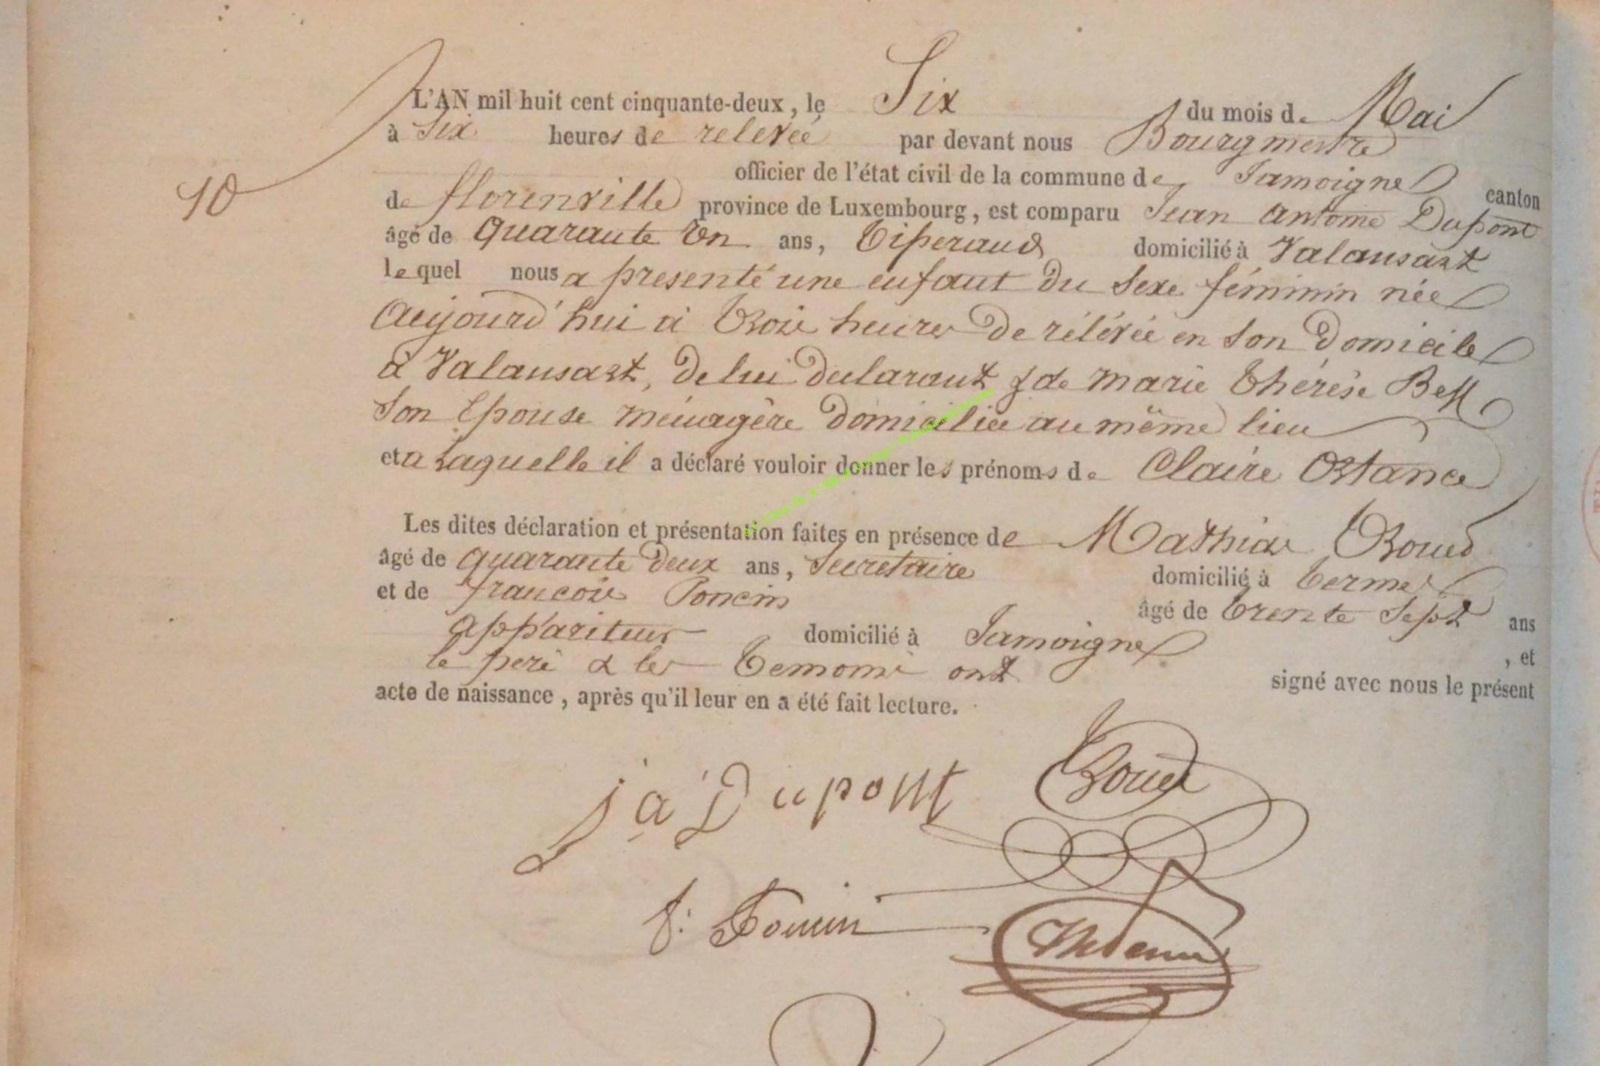 L'AN mil huit cent cinquante-deux, le Six du mois de Mai
à Six heures de relevée par devant nous Bourgmestre
officier de l'état civil de la commune de Jamoigne canton
10
de florenville province de Luxembourg, est comparu Jean antoine Dupont
âgé de quarante un ans, Tisserand domicilié à Valansart
le quel nous a presenté une enfant du Sexe féminin née
aujourd'hui à trois heures de rélévée en Son Domicile
a Valansart, de lui declarant & de marie thérèse
Son Epouse ménagère domiciliée au même lieu
et a Laquelle il a déclaré vouloir donner les prénoms de Claire Ostance
Les dites déclaration et présentation faites en présence de Mathias
âgé de quarante deux ans, Secretaire domicilié à termes
et de francois Poncin âgé de trente Sept ans
appariteur domicilié à Jamoigne , et
le pere & les temoins ont signé avec nous le présent
acte de naissance, après qu'il leur en a été fait lecture.
j a Dupont
f: Poncin